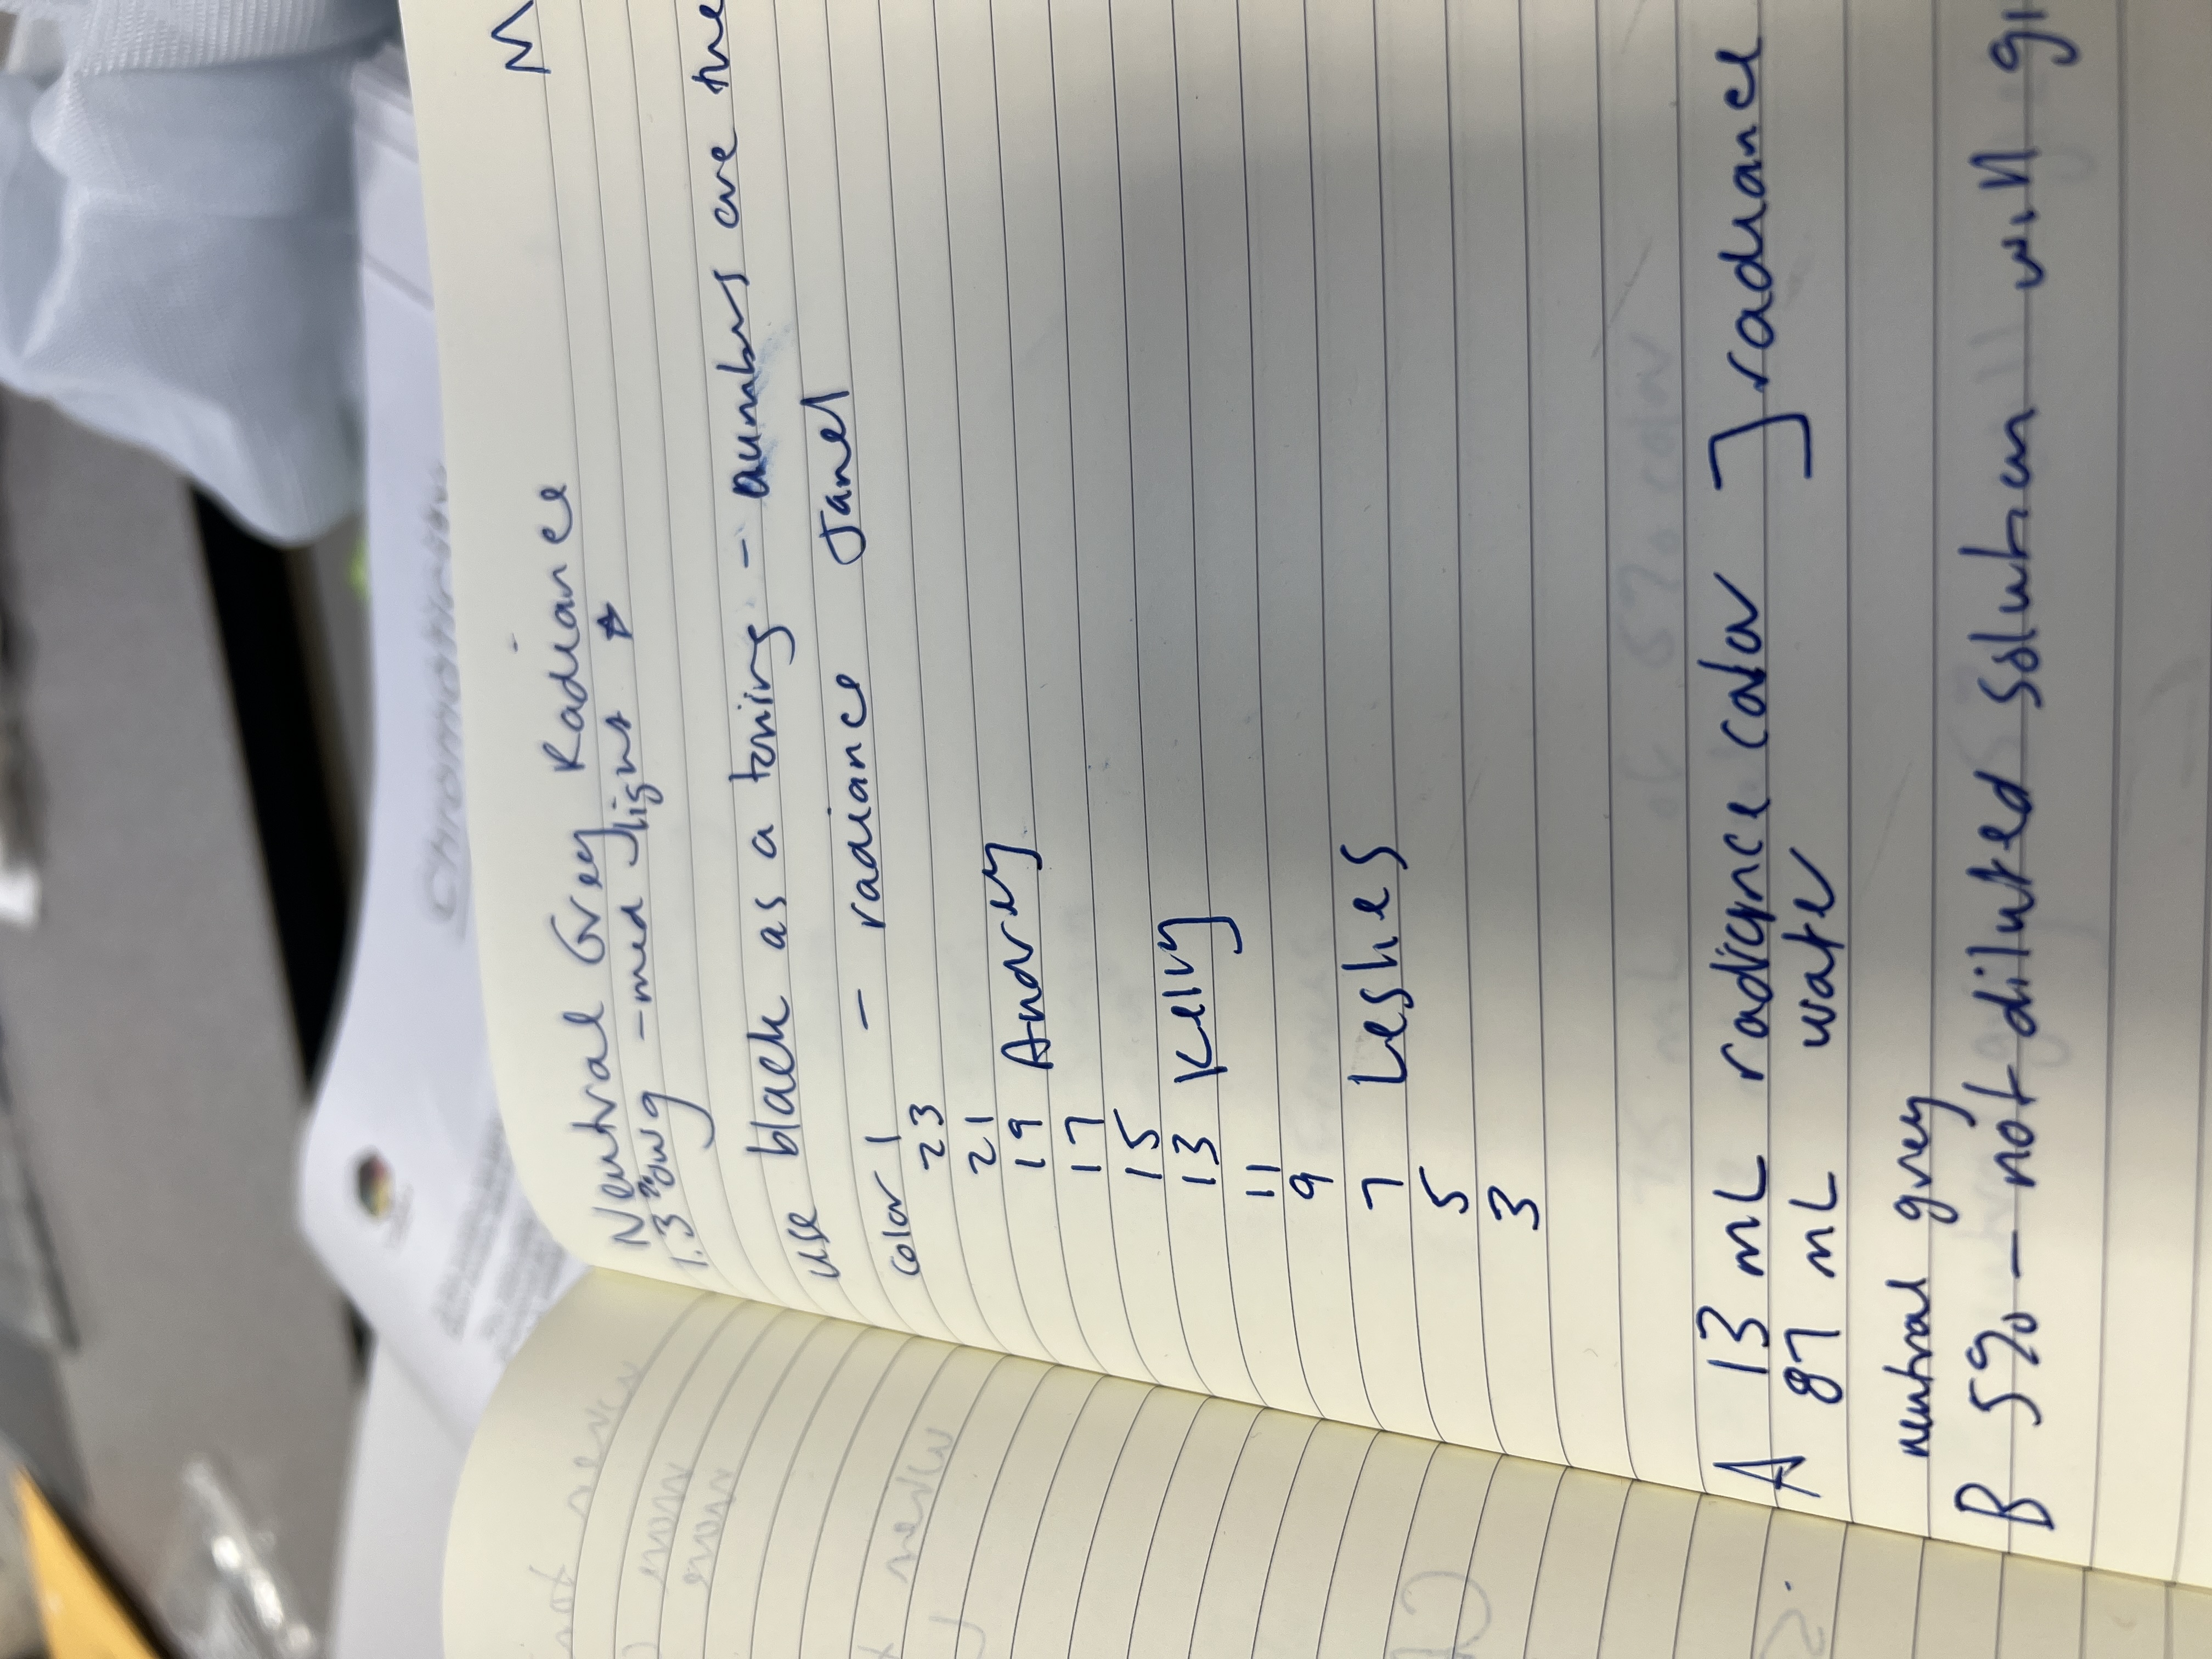 Neutral Grey Radiance
1.3% owg - med light
use black as a toning - numbers are the
color 1 - radiance Janel
23
21
19 Andrey
17
15
13 Kelly
11
9
7 Leslies
5
3
A 13 mL radiance color ] radiance
87 mL water
neutral grey
B 5% - not diluted solution will gi